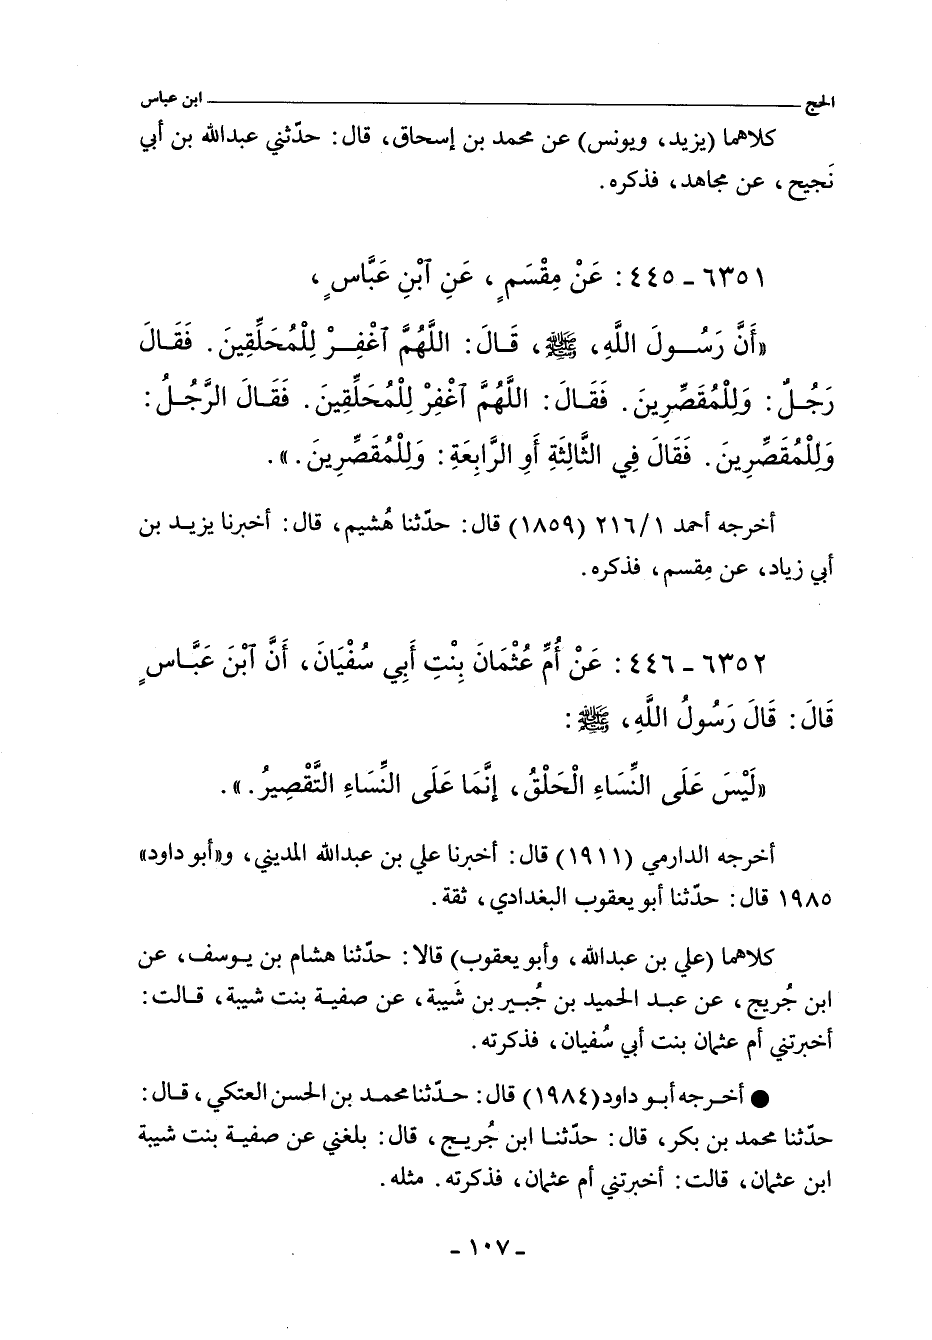 الحج ابن عباس
كلاهما (يزيد، ويونس) عن محمد بن إسحاق، قال: حدّثني عبدالله بن أبي
نَجيح، عن مجاهد، فذكره.
٦٣٥١ - ٤٤٥: عَنْ مِقْسَمٍ، عَنِ ٱبْنِ عَبَّاسٍ،
«أَنَّ رَسُولَ اللَّهِ، ﷺ، قَالَ: اللَّهُمَّ ٱغْفِرْ لِلْمُحَلِّقِينَ. فَقَالَ
رَجُلٌ: وَلِلْمُقَصِّرِينَ. فَقَالَ: اللَّهُمَّ ٱغْفِرْ لِلْمُحَلِّقِينَ. فَقَالَ الرَّجُلُ:
وَلِلْمُقَصِّرِينَ. فَقَالَ فِي الثَّالِثَةِ أَوِ الرَّابِعَةِ: وَلِلْمُقَصِّرِينَ.».
أخرجه أحمد ٢١٦/١ (١٨٥٩) قال: حدّثنا هُشيم، قال: أخبرنا يزيد بن
أبي زياد، عن مِقسم، فذكره.
٦٣٥٢ - ٤٤٦: عَنْ أُمِّ عُثْمَانَ بِنْتِ أَبِي سُفْيَانَ، أَنَّ ٱبْنَ عَبَّاسٍ
قَالَ: قَالَ رَسُولُ اللَّهِ، ﷺ:
«لَيْسَ عَلَى النِّسَاءِ الْحَلْقُ، إِنَّمَا عَلَى النِّسَاءِ التَّقْصِيرُ.».
أخرجه الدارمي (١٩١١) قال: أخبرنا علي بن عبدالله المديني، و«أبو داود»
١٩٨٥ قال: حدّثنا أبو يعقوب البغدادي، ثقة.
كلاهما (علي بن عبدالله، وأبو يعقوب) قالا: حدّثنا هشام بن يوسف، عن
ابن جُريج، عن عبد الحميد بن جُبير بن شَيبة، عن صفية بنت شيبة، قالت:
أخبرتني أم عثمان بنت أبي سُفيان، فذكرته.
● أخرجه أبو داود (١٩٨٤) قال: حدّثنا محمد بن الحسن العتكي، قال:
حدّثنا محمد بن بكر، قال: حدّثنا ابن جُريج، قال: بلغني عن صفية بنت شيبة
ابن عثمان، قالت: أخبرتني أم عثمان، فذكرته. مثله.
- ١٠٧ -